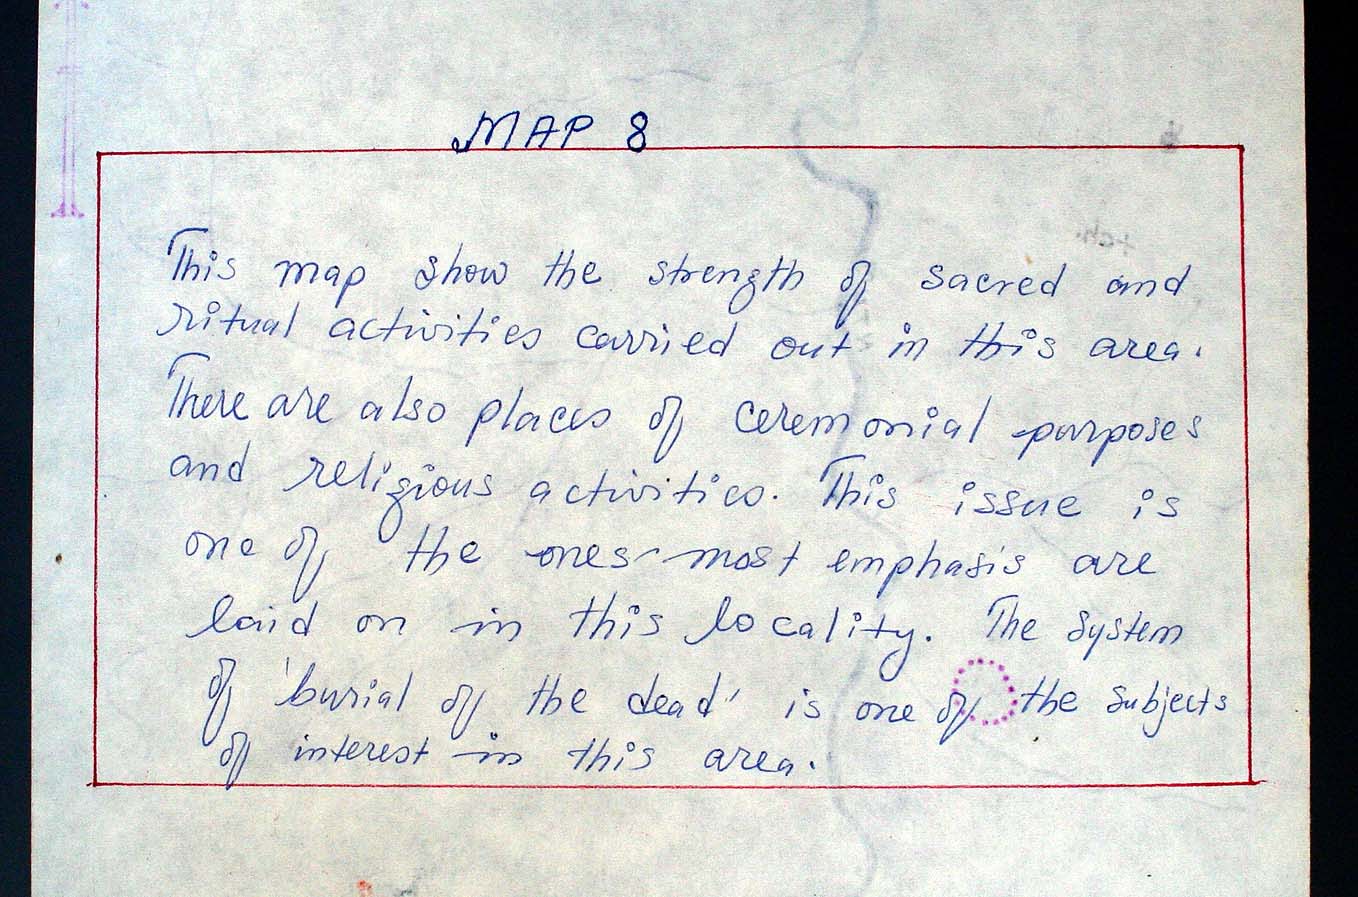 MAP 8
This map show the strength of sacred and
ritual activities carried out in this area.
There are also places of ceremonial purposes
and religious activities. This issue is
one of the ones most emphasis are
laid on in this locality. The system
of 'burial of the dead' is one of the subjects
of interest in this area.